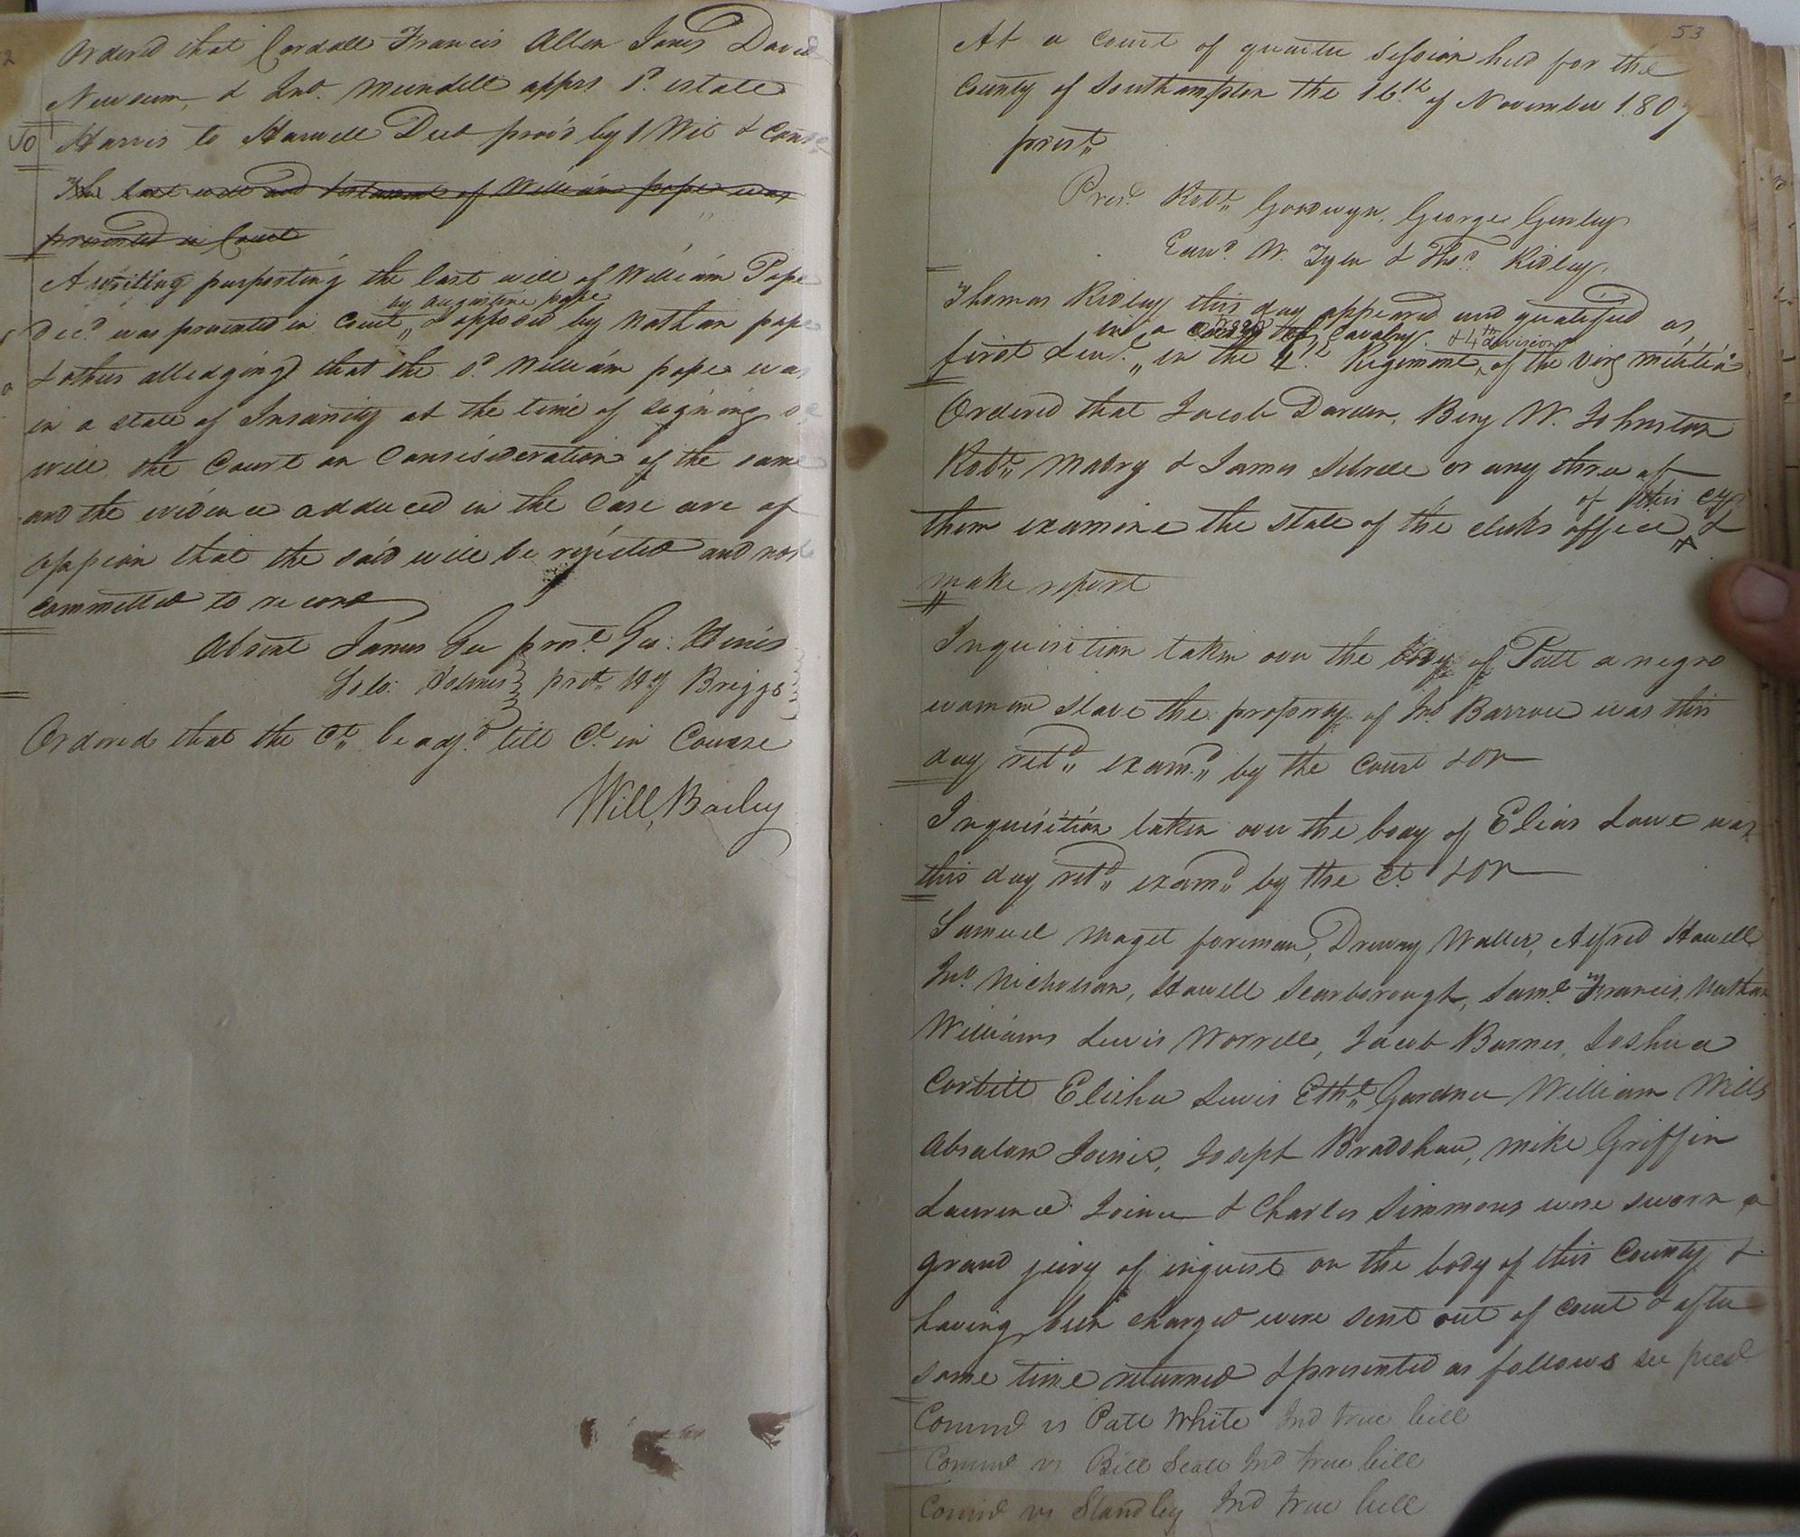 Ordered that Cordall Francis Allen Jones David
Newsum & Jno. Mundell apprs. Sd. estate
Harris to Harwell Deed prov'd by 1 Wit & Contd
The last will and testament of William pope was
presented in Court
A writing purporting the last will of William Pope
by Augustine pope
Decd. was presented in Court & opposed by Nathan pope
& others alledging that the sd. William pope was
in a state of Insanity at the time of signing sd
will, the Court on Consisideration of the same
and the evidence adduced in the Case are of
oppion that the said will be rejected and not
committed to record
Absent James Gee prest. Jo: Hines
prest. Hy Briggs
Ordered that the Ct. be adjd. till Ct. in Course
Will, Bailey
53
At a Court of quarter Session held for the
County of Southampton the 16th. of November 1807
prest.
Prest. Robt. Goodwyn, George Gurley
Edwd. W. Tyler & Thos. Ridley,
Thomas Ridley this day appeared and qualified as
in a troop of Cavalry & 4th division
first Leut. in the 4th. Regiment of the Virg militia
Ordered that Jacob Darden, Benj W. Johnston
Robt. Mabry & James Sebrell or any three of
of this Cty
them examine the state of the clerks office &
make report
Inquisition taken over the body of Patt a negro
woman slave the property of Jno Barrow was this
day retd. examd. by the Court & OR
Inquisition taken over the body of Elias Lowe was
this day retd. examd. by the Ct. & OR
Samuel Maget foreman, Drewry Waller, Alfred Howell
Jno. Nicholson, Howell Scarborough, Saml. Francis, Nathan
Williams Lewis Worrell, Jacob Barnes, Joshua
Corbitt Elisha Lewis Ethd. Gardner William Mills
Absalom Joiner, Joseph Bradshaw, Mike Griffin
Laurence Joiner & Charles Simmons were sworn a
grand jury of inquest on the body of this County &
having been charged were sent out of court & after
some time returned & presented as follows see pred
Comwd vs Patt White Ind true bill
Comwd vs Bill Scott Ind true bill
Comwd vs Standley Ind true bill